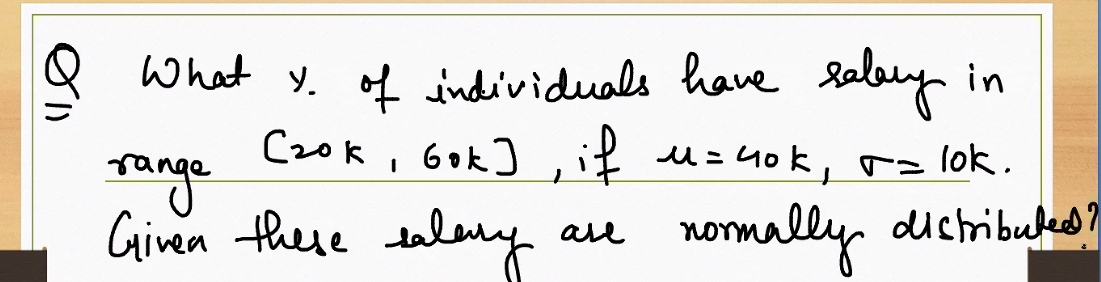 Q What % of individuals have salary in
range [20k, 60k], if μ = 40k, σ = 10k.
Given these salary are normally distributed?